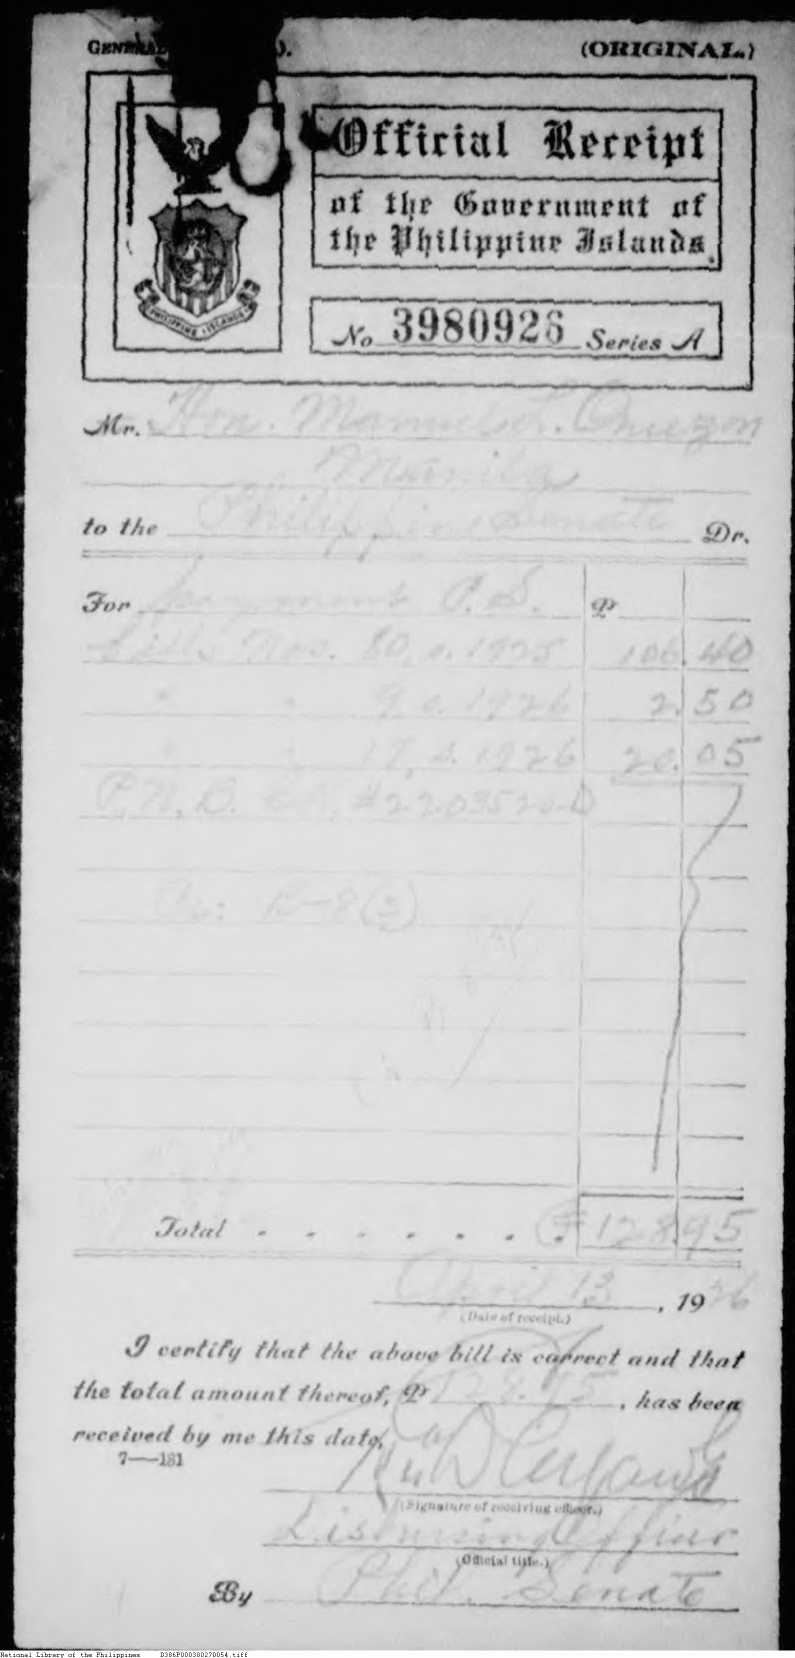 (ORIGINAL.)
PHILIPPINE ISLANDS
Official Receipt
of the Government of
the Philippine Islands.
No 3980926 Series A
Mr. Hon. Manuel L. Quezon
Manila
to the Philippine Senate Dr.
For payment P. S. ₱
bills Nos. 80, s. 1925 106.40
" " 9, s. 1926 2.50
" " 17, s. 1926 20.05
P.N.B. #220352
B-8(3)
Total ₱128.95
April 13, 1926
(Date of receipt.)
I certify that the above bill is correct and that
the total amount thereof, ₱ 128.95, has been
received by me this date.
7—181
(Signature of receiving officer.)
Disbursing Officer
(Official title.)
By Phil. Senate
National Library of the Philippines D386P000380270054.tiff